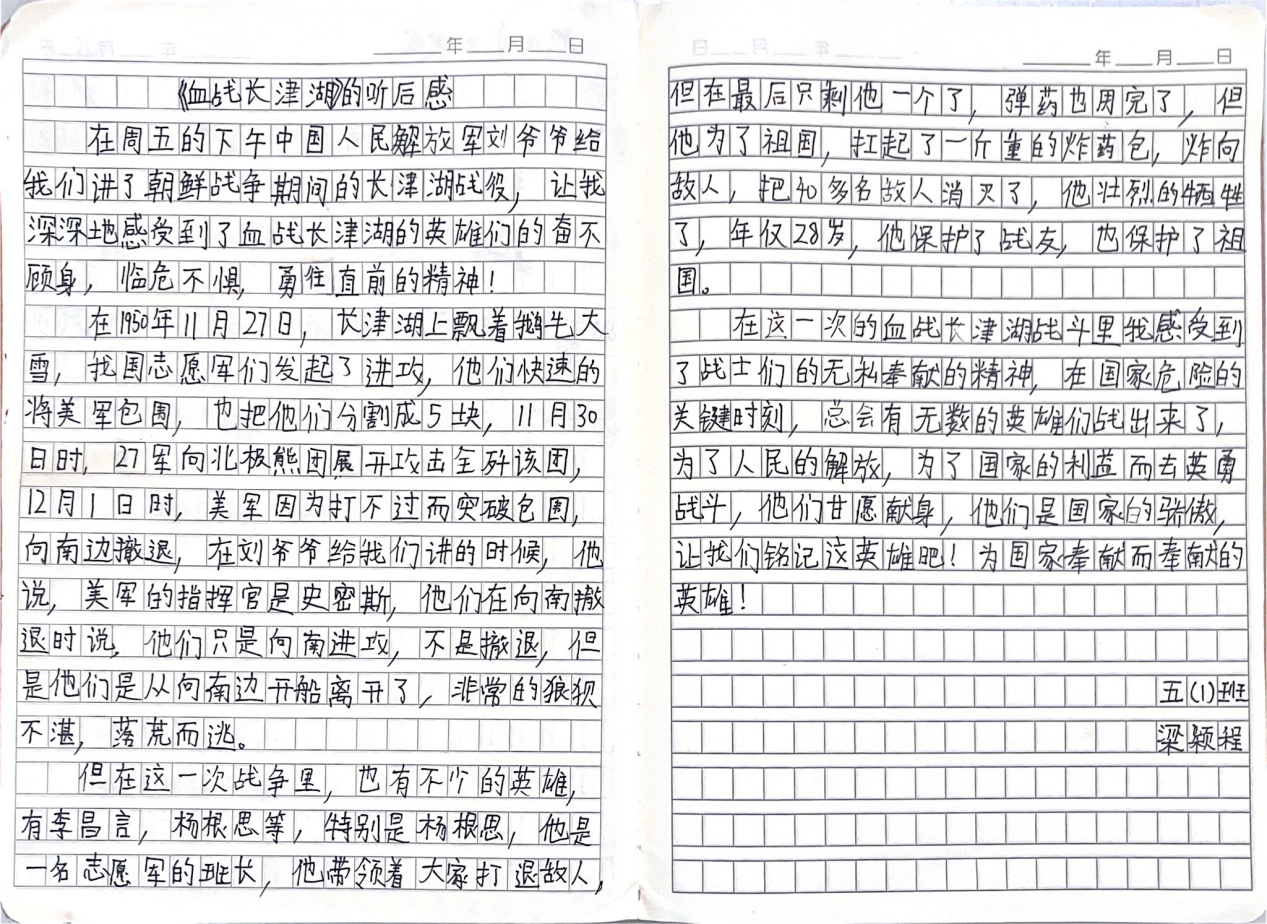 ____年___月___日
《血战长津湖》的听后感
在周五的下午中国人民解放军刘爷爷给
我们讲了朝鲜战争期间的长津湖战役，让我
深深地感受到了血战长津湖的英雄们的奋不
顾身，临危不惧，勇往直前的精神！
在1950年11月27日，长津湖上飘着鹅毛大
雪，我国志愿军们发起了进攻，他们快速的
将美军包围，也把他们分割成5块，11月30
日时，27军向北极熊团展开攻击全歼该团，
12月1日时，美军因为打不过而突破包围，
向南边撤退，在刘爷爷给我们讲的时候，他
说，美军的指挥官是史密斯，他们在向南撤
退时说，他们只是向南进攻，不是撤退，但
是他们是从向南边开船离开了，非常的狼狈
不湛，落荒而逃。
但在这一次战争里，也有不少的英雄，
有李昌言，杨根思等，特别是杨根思，他是
一名志愿军的班长，他带领着大家打退敌人，
____年___月___日
但在最后只剩他一个了，弹药也用完了，但
他为了祖国，扛起了一斤重的炸药包，炸向
敌人，把40多名敌人消灭了，他壮烈的牺牲
了，年仅28岁，他保护了战友，也保护了祖
国。
在这一次的血战长津湖战斗里我感受到
了战士们的无私奉献的精神，在国家危险的
关键时刻，总会有无数的英雄们战出来了，
为了人民的解放，为了国家的利益而去英勇
战斗，他们甘愿献身，他们是国家的骄傲，
让我们铭记这英雄吧！为国家奉献而奉献的
英雄！
五(1)班
梁颖程